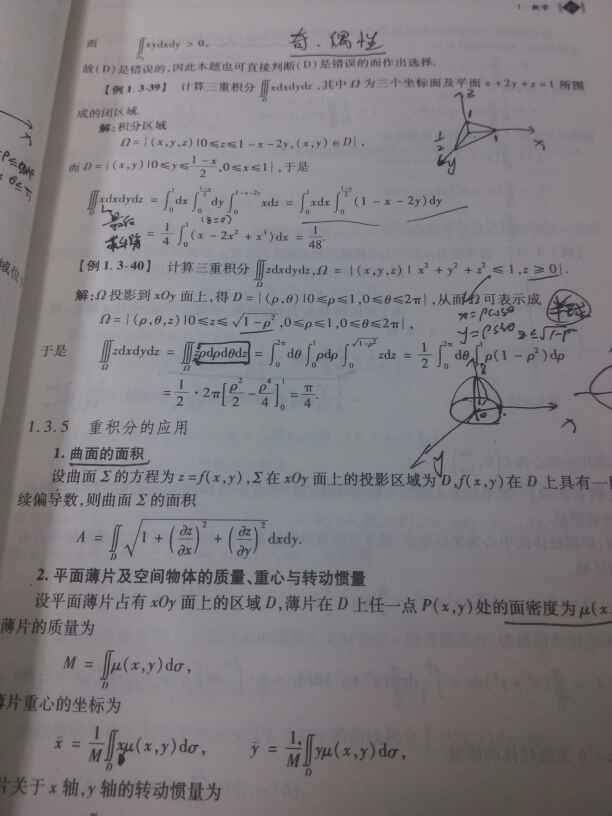 1 数学
而 ∬_D xydxdy > 0,
奇、偶性
故(D)是错误的,因此本题也可直接判断(D)是错误的而作出选择。
【例 1.3-39】 计算三重积分 ∭_Ω xdxdydz,其中 Ω 为三个坐标面及平面 x + 2y + z = 1 所围
成的闭区域。
解:积分区域
Ω = {(x,y,z)|0≤z≤1-x-2y,(x,y)∈D},
而 D = {(x,y)|0≤y≤(1-x)/2,0≤x≤1},于是
∭_Ω xdxdydz = ∫_0^1 dx ∫_0^{(1-x)/2} dy ∫_0^{1-x-2y} xdz = ∫_0^1 xdx ∫_0^{(1-x)/2} (1-x-2y)dy
(z=0)
= 1/4 ∫_0^1 (x - 2x² + x³)dx = 1/48.
【例 1.3-40】 计算三重积分 ∭_Ω zdxdydz,Ω = {(x,y,z)| x² + y² + z² ≤ 1,z ≥ 0}.
解:Ω 投影到 xOy 面上,得 D = {(ρ,θ)|0≤ρ≤1,0≤θ≤2π},从而 Ω 可表示成
x=ρcosθ
Ω = {(ρ,θ,z)|0≤z≤√(1-ρ²),0≤ρ≤1,0≤θ≤2π},
于是 ∭_Ω zdxdydz = ∭_Ω zρdρdθdz = ∫_0^{2π} dθ ∫_0^1 ρdρ ∫_0^{√(1-ρ²)} zdz = 1/2 ∫_0^{2π} dθ ∫_0^1 ρ(1-ρ²)dρ
= 1/2 · 2π[ρ²/2 - ρ⁴/4]_0^1 = π/4.
1.3.5 重积分的应用
1. 曲面的面积
设曲面 Σ 的方程为 z = f(x,y),Σ 在 xOy 面上的投影区域为 D,f(x,y)在 D 上具有一
续偏导数,则曲面 Σ 的面积
A = ∬_D √(1 + (∂z/∂x)² + (∂z/∂y)²) dxdy.
2. 平面薄片及空间物体的质量、重心与转动惯量
设平面薄片占有 xOy 面上的区域 D,薄片在 D 上任一点 P(x,y)处的面密度为 μ(x
薄片的质量为
M = ∬_D μ(x,y)dσ,
薄片重心的坐标为
x̄ = 1/M ∬_D xμ(x,y)dσ, ȳ = 1/M ∬_D yμ(x,y)dσ,
片关于 x 轴,y 轴的转动惯量为